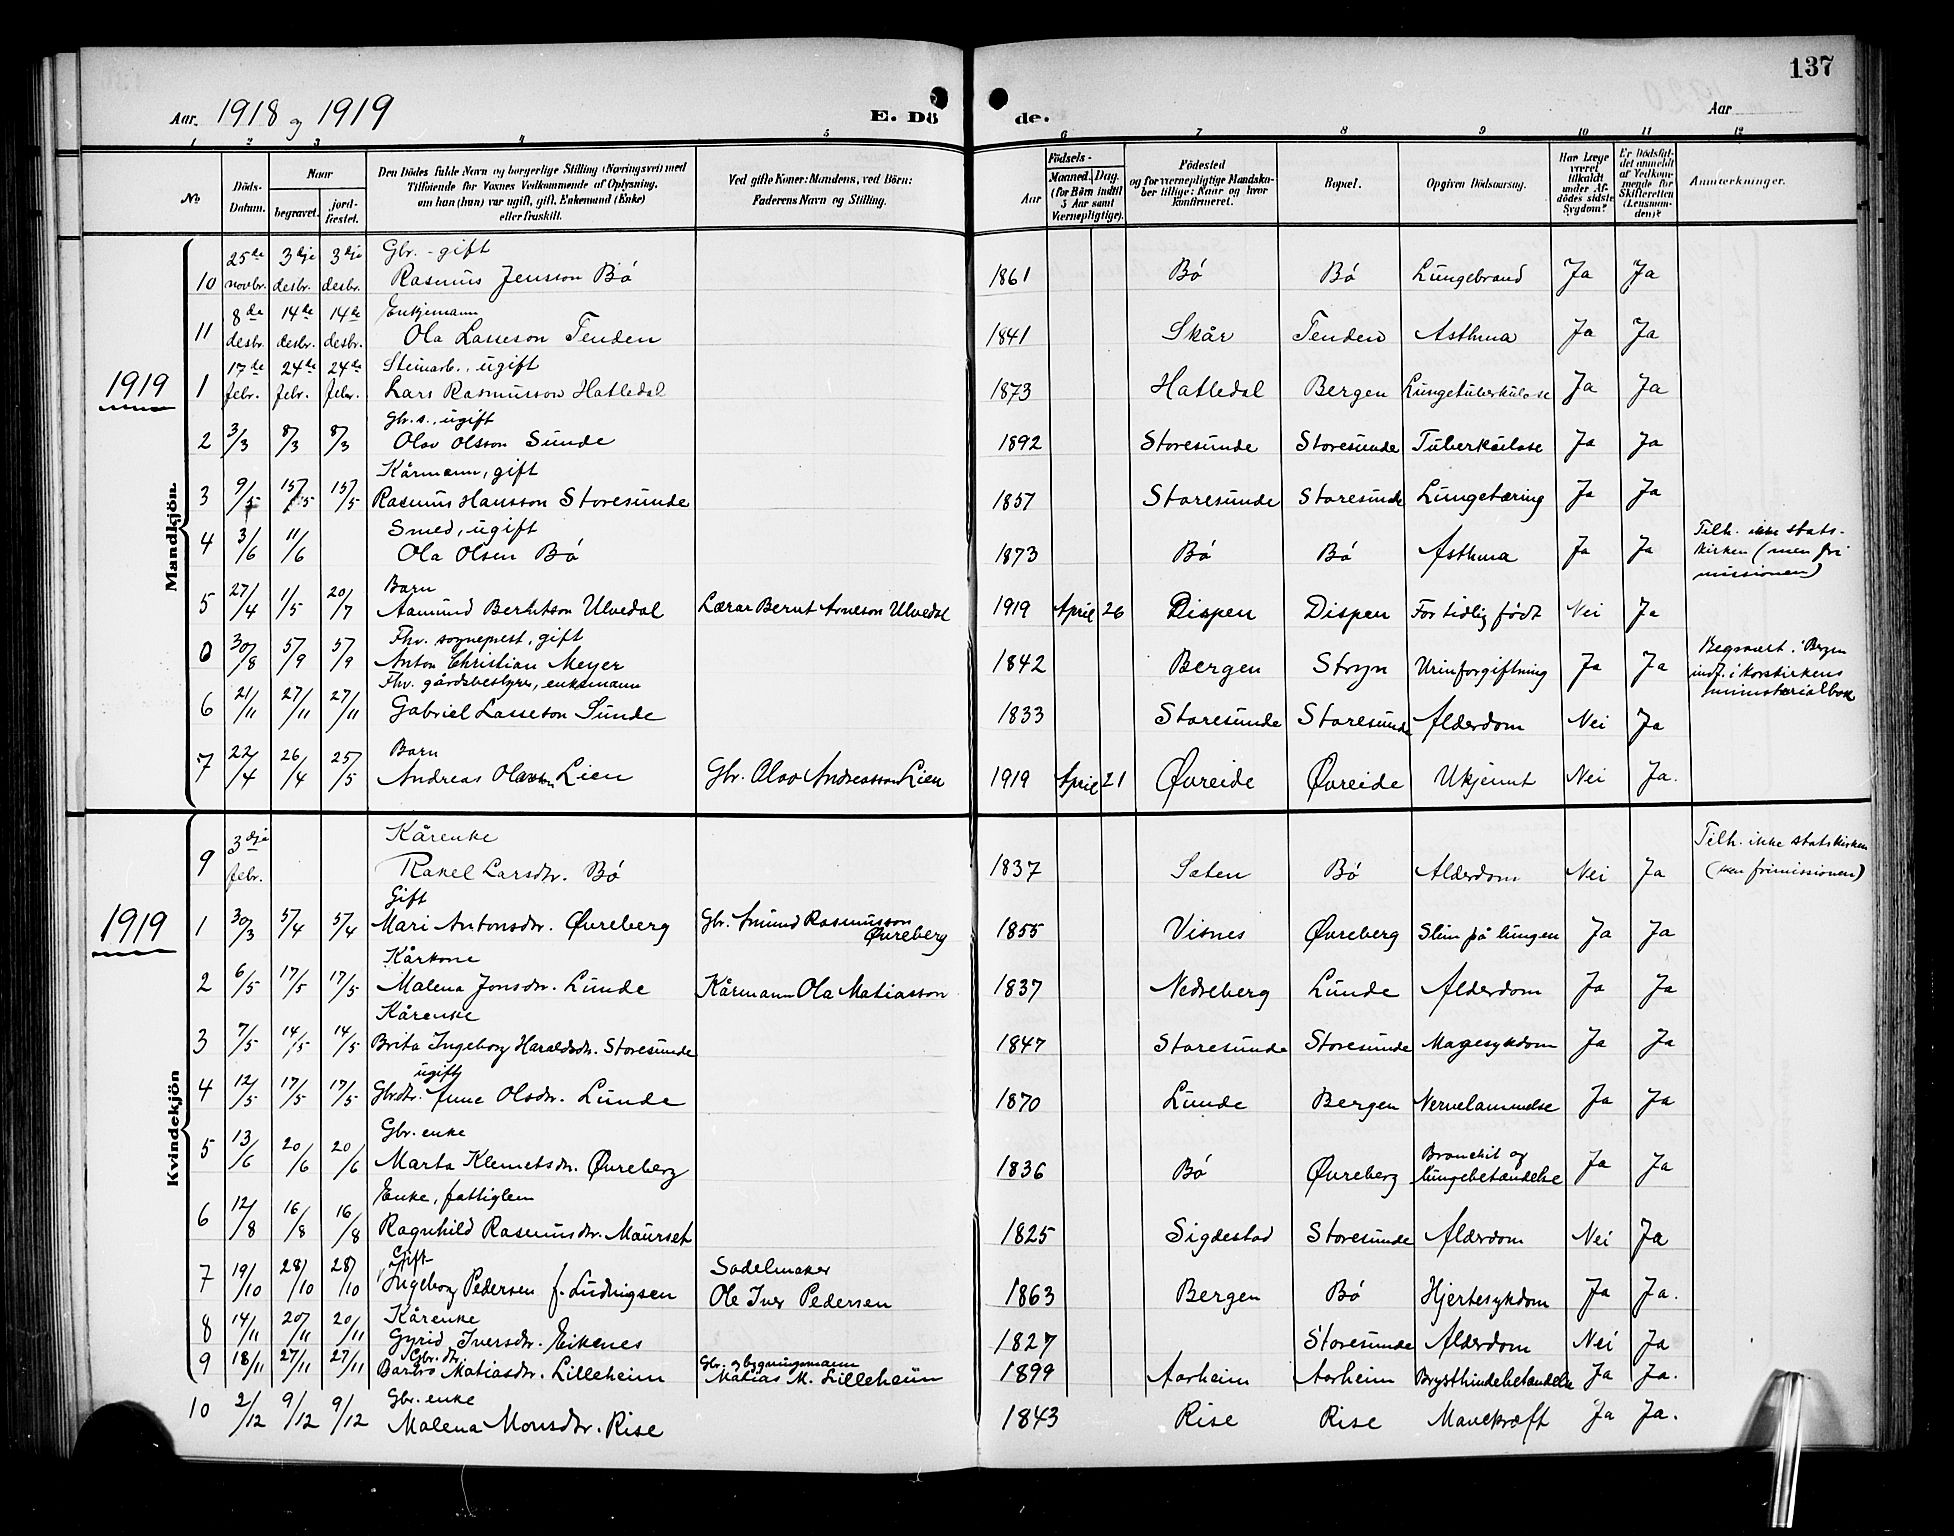 137
Aar. 1918 og 1919 E. Dö de. Aar
1 2 3 4 5 6 7 8 9 10 11 12
No
Döds-Datum.
Naar begravet. jordfæstet.
Den Dödes fulde Navn og borgerlige Stilling (Næringsvei) med Tilföiende for Voxnes Vedkommende af Oplysning, om han (hun) var ugift, gift, Enkemand (Enke) eller fraskilt.
Ved gifte Koner: Mandens, ved Börn: Faderens Navn og Stilling.
Födsels-
Aar Maaned. Dag. (for Börn indtil 5 Aar samt Værnepligtige).
Födested og for værnepligtige Mandskaber tillige: Naar og hvor konfirmeret.
Bopæl.
Opgiven Dödsaarsag.
Har Læge været tilkaldt under Afdödes sidste Sygdom?
Er Dödsfaldet anmeldt af Vedkommende for Skifteretten (Lensmanden)?
Anmærkninger.
Mandkjön.
10 25de novbr. 3dje desbr. 3dje desbr. Gbr. - gift
Rasmus Jensson Bö 1861 Bö Bö Lungebrand Ja Ja
11 8de desbr. 14de desbr. 14de desbr. Enkjemann
Ola Lasseson Tenden 1841 Skår Tenden Asthma Ja Ja
1919
1 17de febr. 24de febr. 24de febr. Steinarb., ugift
Lars Rasmusson Hatledal 1873 Hatledal Bergen Lungetuberkulose Ja Ja
2 3/3 8/3 8/3 Gbr.s., ugift
Olav Olsson Sunde 1892 Storesunde Storesunde Tuberkulose Ja Ja
3 9/5 15/5 15/5 Kårmann, gift
Rasmus Hansson Storesunde 1857 Storesunde Storesunde Lungetæring Ja Ja
4 3/6 11/6 Smed, ugift
Ola Olsen Bö 1873 Bö Bö Asthma Ja Ja Tilh. ikke stats-
kirken (men fri
missionen)
5 27/4 1/5 20/7 Barn
Aamund Berntson Ulvedal Lærar Bernt Arneson Ulvedal 1919 April 26 Dispen Dispen For tidlig födt Nei Ja
0 30/8 5/9 5/9 Fhv. sogneprest, gift
Anton Christian Meyer 1842 Bergen Stryn Urinforgiftning Ja Ja Begravet i Bergen
indf. i Korskirkens
ministerialbok
6 21/11 27/11 27/11 Fhv. gårdsbestyrer, enkemann
Gabriel Lasseson Sunde 1833 Storesunde Storesunde Alderdom Nei Ja
7 22/4 26/4 25/5 Barn
Andreas Olavson Lien Gbr. Olav Andreasson Lien 1919 April 21 Øvreide Øvreide Ukjennt Nei Ja.
Kvindekjön
9 3dje febr. Kårenke
Rakel Larsdtr. Bö 1837 Sæten Bö Alderdom Nei Ja Tilh. ikke statskirken
(men frimissionen)
1919
1 30/3 5/4 5/4 Gift
Mari Antonsdtr. Øvreberg Gbr. Amund Rasmusson
Øvreberg 1855 Visnes Øvreberg Slim på lungen Ja Ja
2 6/5 17/5 17/5 Kårkone
Malena Jonsdtr. Lunde Kårmann Ola Matiasson 1837 Nedreberg Lunde Alderdom Ja Ja
3 7/5 14/5 14/5 Kårenke
Brita Ingeborg Haraldsdtr. Storesunde 1847 Storesunde Storesunde Magesykdom Ja Ja
4 12/5 17/5 17/5 ugift
Gbrdtr. Anne Olsdtr. Lunde 1870 Lunde Bergen Nervelammelse Ja Ja
5 13/6 20/6 20/6 Gbr. enke
Marta Klemetsdtr. Øvreberg 1836 Bö Øvreberg Bronchit og
lungebetændelse Ja Ja
6 12/8 16/8 16/8 Enke, fattiglem
Ragnhild Rasmusdtr. Maurset 1825 Sigdestad Storesunde Alderdom Nei Ja
7 19/10 28/10 28/10 Gift
Ingeborg Pedersen f. Ludvigsen Sadelmaker
Ole Iver Pedersen 1863 Bergen Bö Hjertesykdom Ja Ja.
8 14/11 20/11 20/11 Kårenke
Gyrid Iversdtr. Eikenes 1827 Storesunde Alderdom Nei Ja
9 18/11 27/11 27/11 Gbr.dtr.
Barbro Matiasdtr. Lilleheim Gbr. og bygningsmann
Matias M. Lilleheim 1899 Aarheim Aarheim Brysthindebetændelse Ja Ja.
10 2/12 9/12 9/12 Gbr. enke
Malena Monsdtr. Rise 1843 Rise Rise Mavekræft Ja Ja.